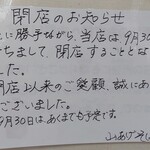 閉店のお知らせ
に勝手ながら、当店は9月30
ちまして、閉店することとな
した。
閉店以来のご笑顧、誠にあ
ございました。
9月30日はあくまでも予定です。
山あげそ